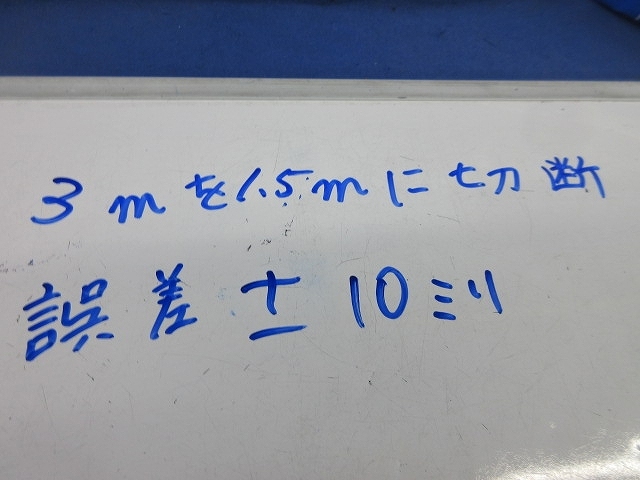 3mを1.5mに切断
誤差±10ミリ